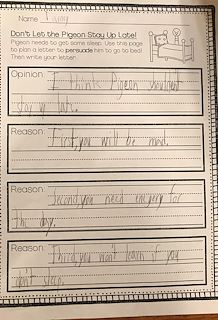 Name
Don't Let the Pigeon Stay Up Late!
Pigeon needs to get some sleep. Use this page
to plan a letter to persuade him to go to bed!
Then write your letter!
Opinion: I think Pigeon shouldn't
stay up late.
Reason: First, you will be mad.
Reason: Second, you need energy for
the day.
Reason: Third, you won't learn if you
don't sleep.